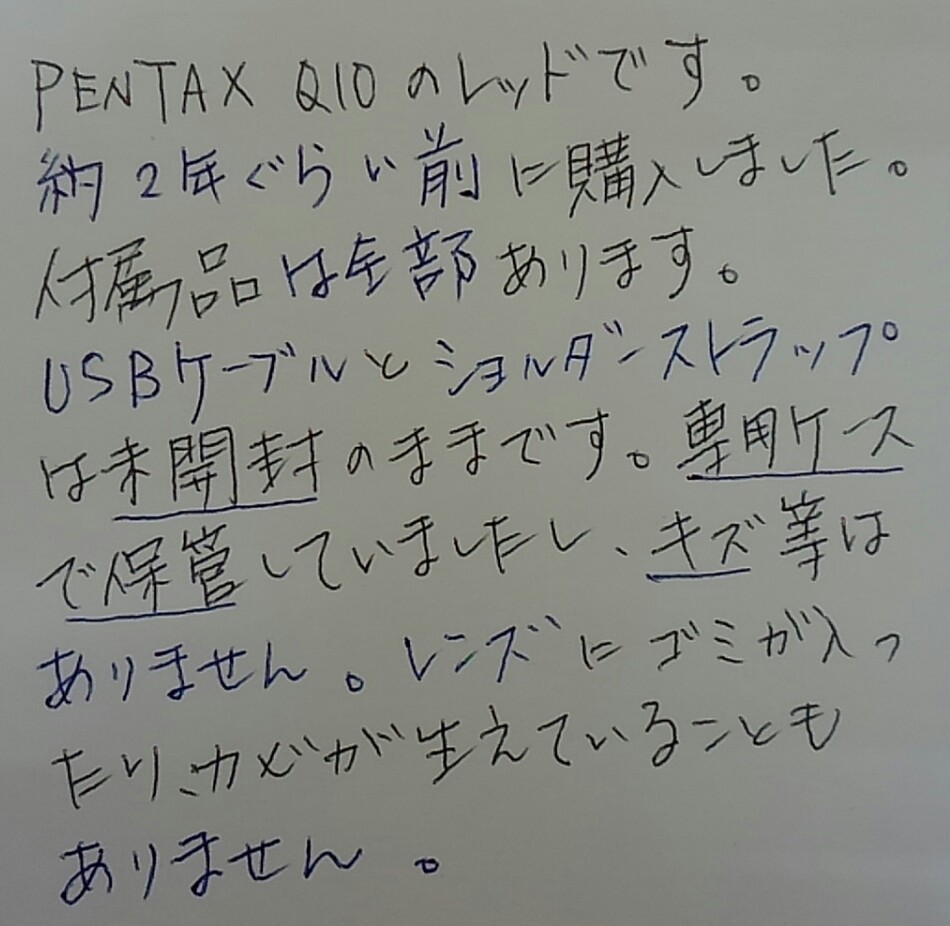 PENTAX Q10のレッドです。
約2年ぐらい前に購入しました。
付属品は全部あります。
USBケーブルとショルダーストラップ
は未開封のままです。専用ケース
で保管していましたし、キズ等は
ありません。レンズにゴミが入っ
たり、カビが生えていることも
ありません。